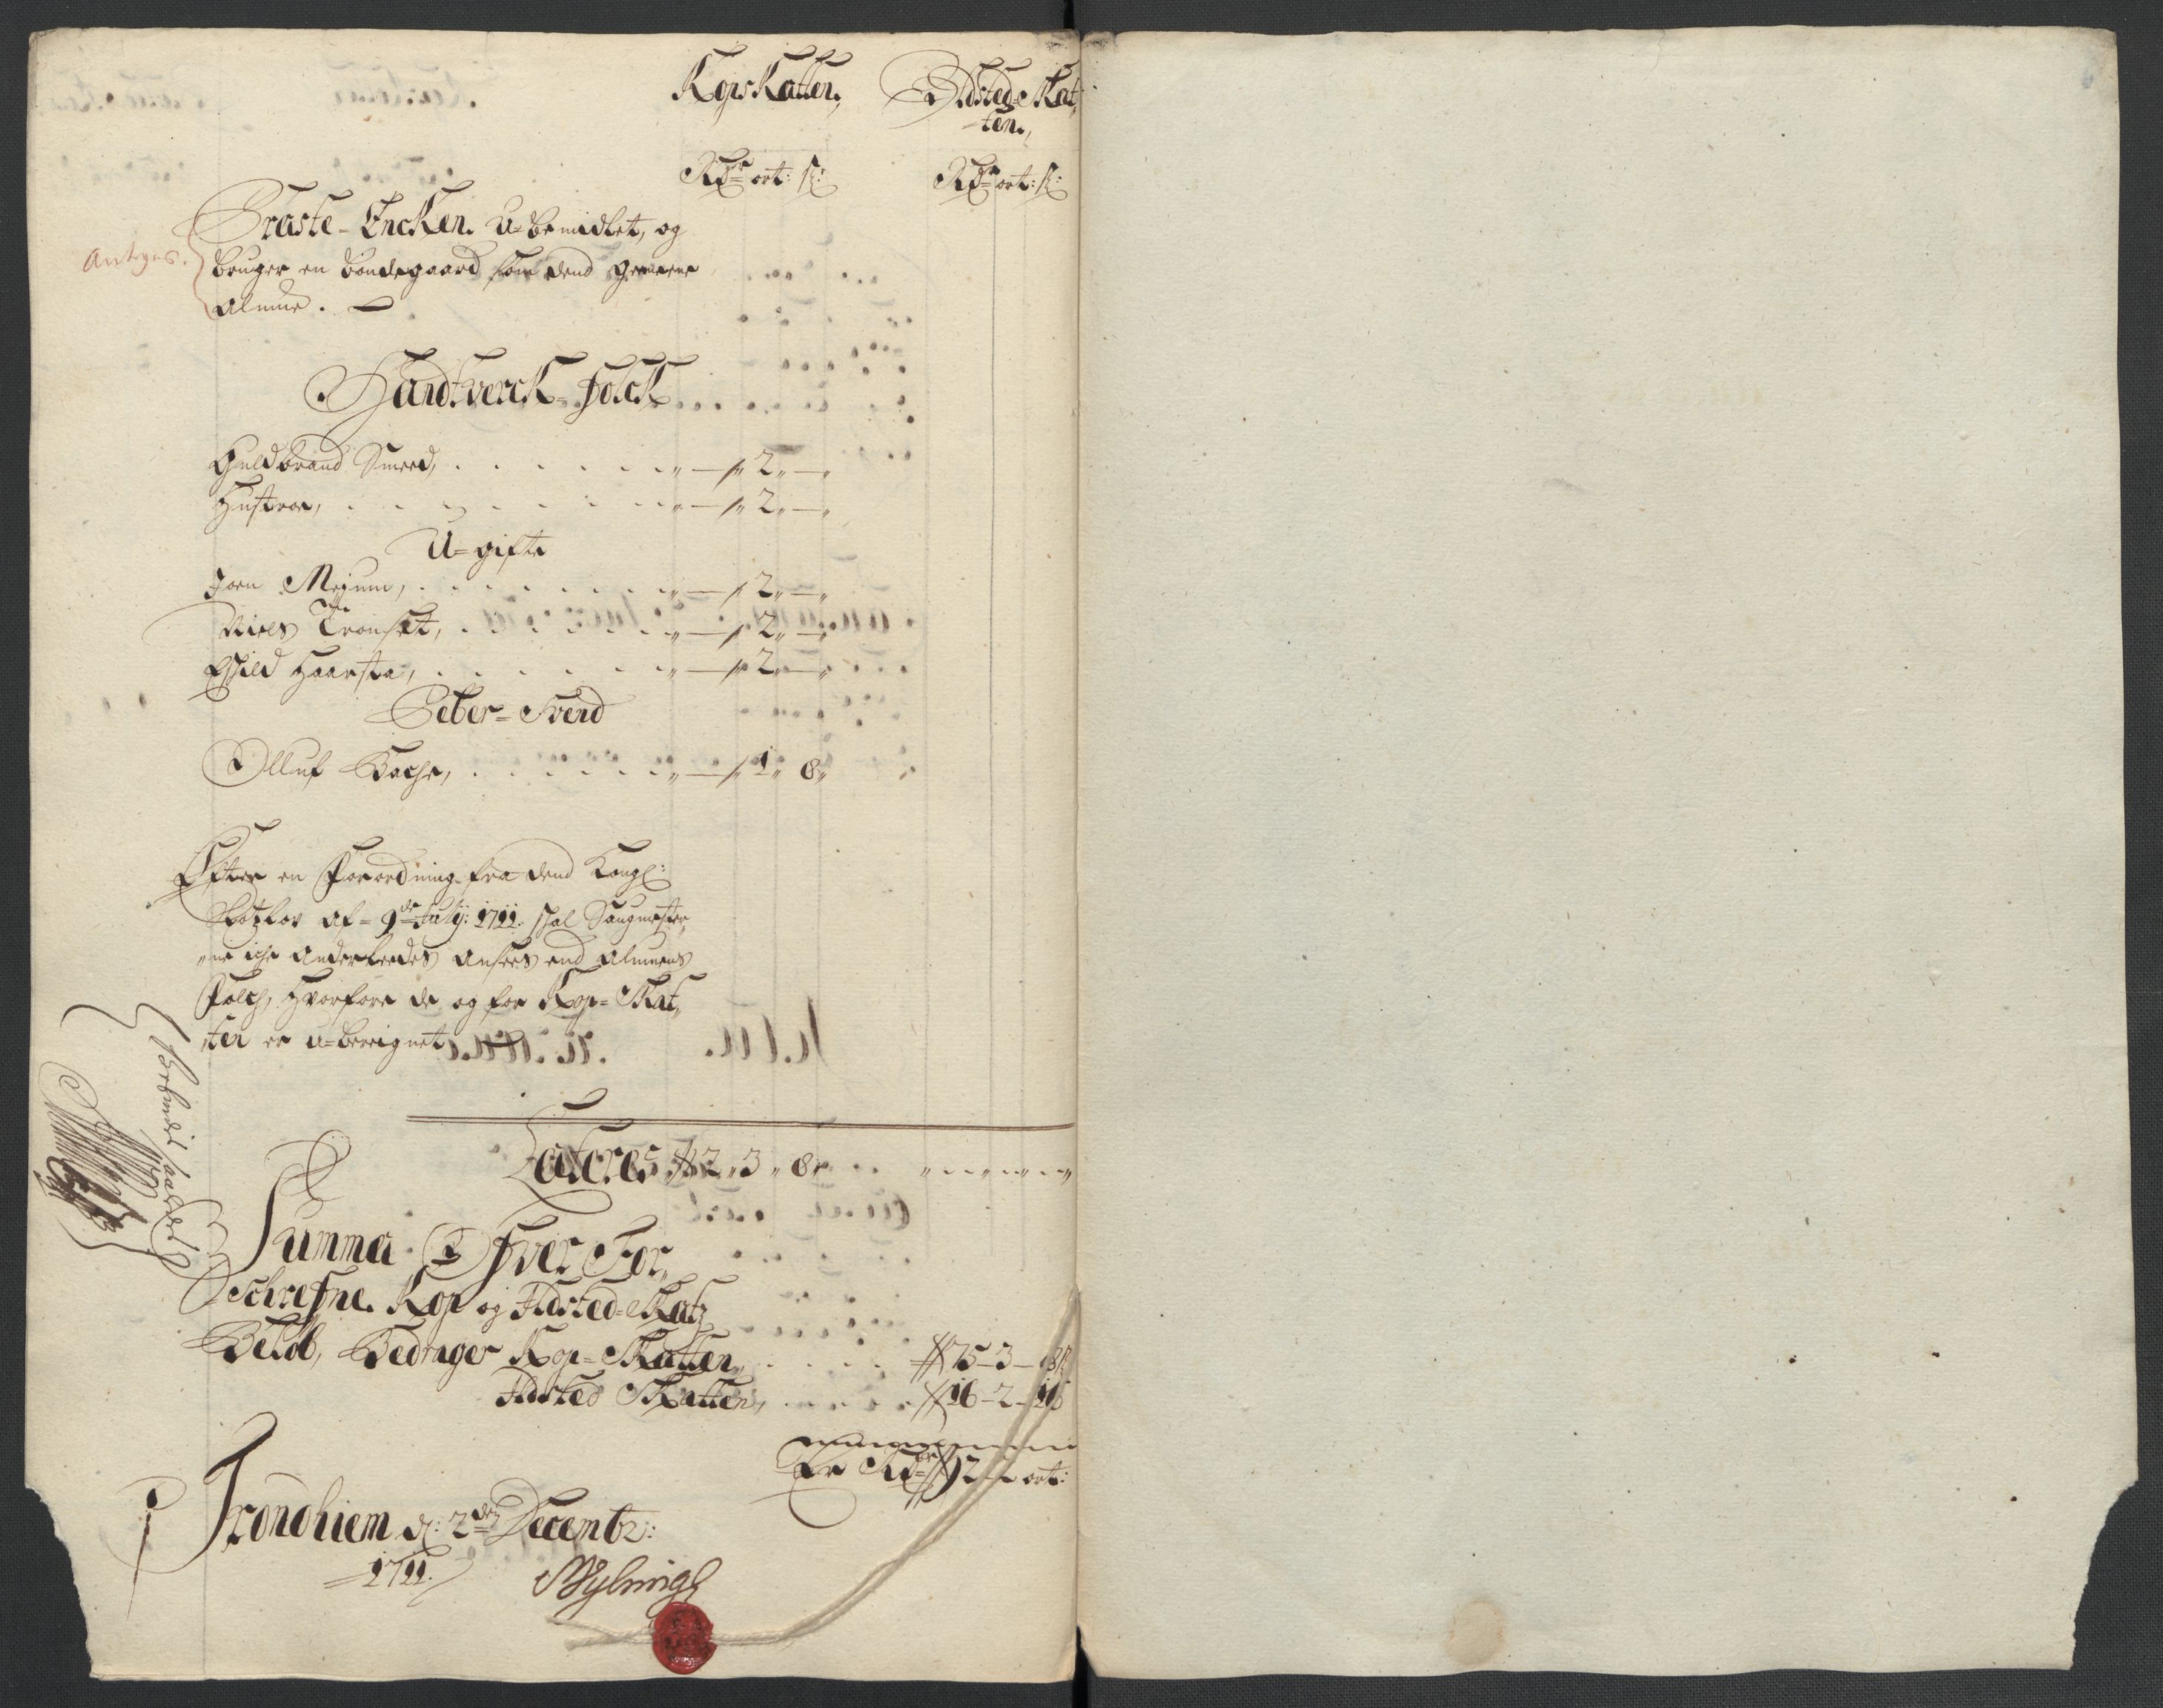 KopsKatten,
Ildsted-Skat
ten,
Rdr ort: s:
Rdr ort: s:
Præste-EncKen. U-bemidlet, og
Antegnes.
bruger en bondegaard som dend gemene
Almue.
HandtvercK-folcK
Guldbrand Smed, . . . . . . „ — „ 2 „ — „
Hustroe, . . . . . . „ — „ 2 „ — „
U-gifte
Joen Mejum, . . . . . . „ — „ 2 „ — „
Niels Tronset, . . . . . . „ — „ 2 „ — „
Eskild Haarsta, . . . . . . „ — „ 2 „ — „
Peber-Svend
Olluf Bache, . . . . . . „ — „ 1 „ 8 „
Efter en Forordning fra dend Kongl:
Slotzlov af 9de July: 1711. skal Saugmester„
„ne iche anderleedes ansees end Almuens
Folch, Hvorfore de og for Kop-Skat„
„ten er u-bereignet
Lateres 2 „ 3 „ 8 „
Summa Ofver For„
Schrefne Kop og Ildsted-Skatz
Beløb, Bedrager Kop-Skatten, . . . . 75 – 3 – 8
Ildsted Skatten, . . . . 16 – 2 – 16
Er Rdr 92 – – ort:
Trondhiem d: 2den Decembr:
1711.